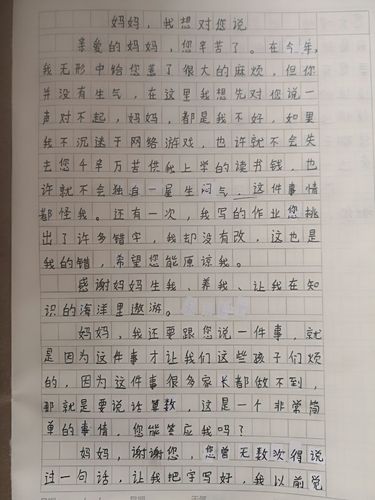 妈妈，我想对您说
亲爱的妈妈，您辛苦了。在今年，
我无形中给您惹了很大的麻烦，但你
并没有生气，在这里我想先对您说一
声对不起，妈妈，都是我不好，如果
我不沉迷于网络游戏，也许就不会失
去您千辛万苦供我上学的读书钱，也
许就不会独自一屋生闷气，这件事情
都怪我。还有一次，我写的作业您挑
出了许多错字，我却没有改，这也是
我的错，希望您能原谅我。
感谢妈妈生我、养我、让我在知
识的海洋里遨游。
妈妈，我还要跟您说一件事，就
是因为这件事才让我们这些孩子们烦
的，因为这件事很多家长都做不到，
那就是要说话算数，这是一个非常简
单的事情，您能答应我吗？
妈妈，谢谢您，您曾无数次得说
过一句话，让我把字写好，我以前觉